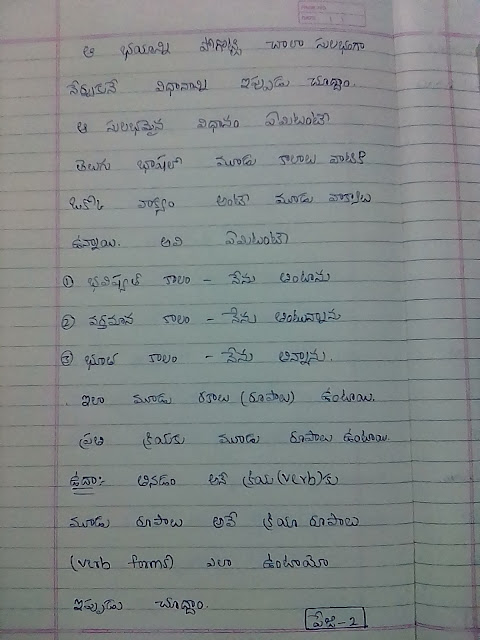 ఆ భయాన్ని పోగొట్టి చాలా సులభంగా
నేర్చుకునే విధానాన్ని ఇప్పుడు చూద్దాం.
ఆ సులభమైన విధానం ఏమిటంటే
తెలుగు భాషలో మూడు కాలాలు వాటికి
ఒకొక్క వాక్యం అంటే మూడు వాక్యాలు
ఉన్నాయి. అవి ఏమిటంటే
① భవిష్యత్ కాలం - నేను అంటాను
② వర్తమాన కాలం - నేను అంటున్నాను
③ భూత కాలం - నేను అన్నాను.
ఇలా మూడు రకాలు (రూపాలు) ఉంటాయి.
ప్రతి క్రియకు మూడు రూపాలు ఉంటాయి.
ఉదా:- తినడం అనే క్రియ (verb) కు
మూడు రూపాలు అవే క్రియా రూపాలు
(verb forms) ఎలా ఉంటాయో
ఇప్పుడు చూద్దాం.
పేజి-2